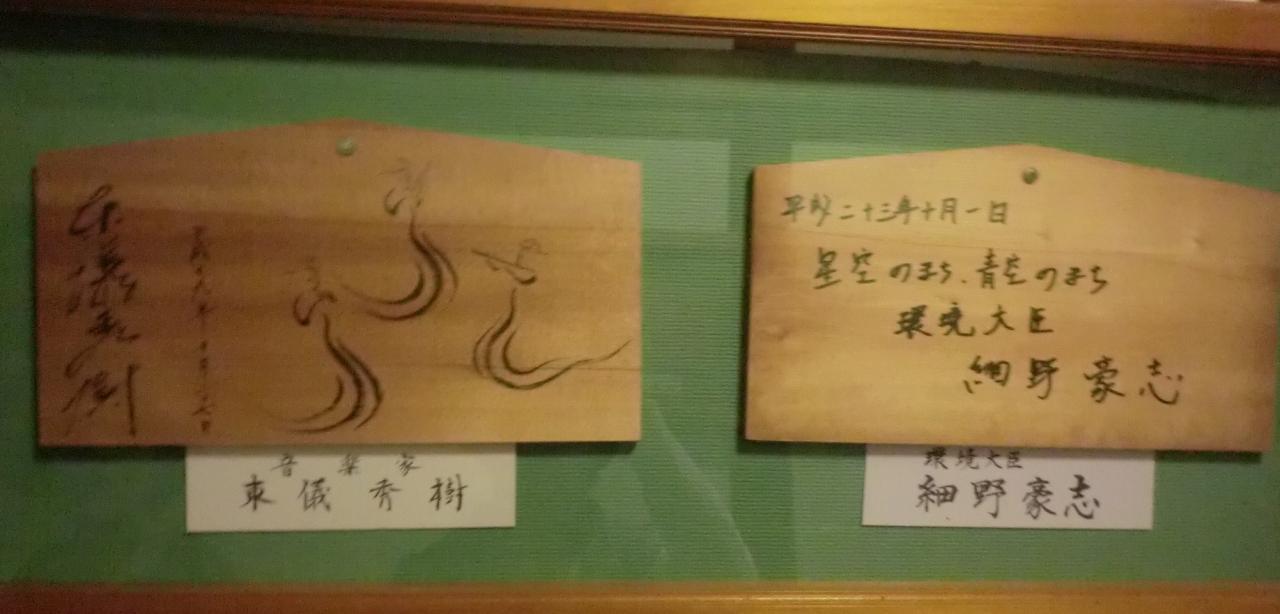 東儀秀樹
音楽家
東儀秀樹
平成二十三年十月一日
星空のまち、青空のまち
環境大臣
細野豪志
環境大臣
細野豪志